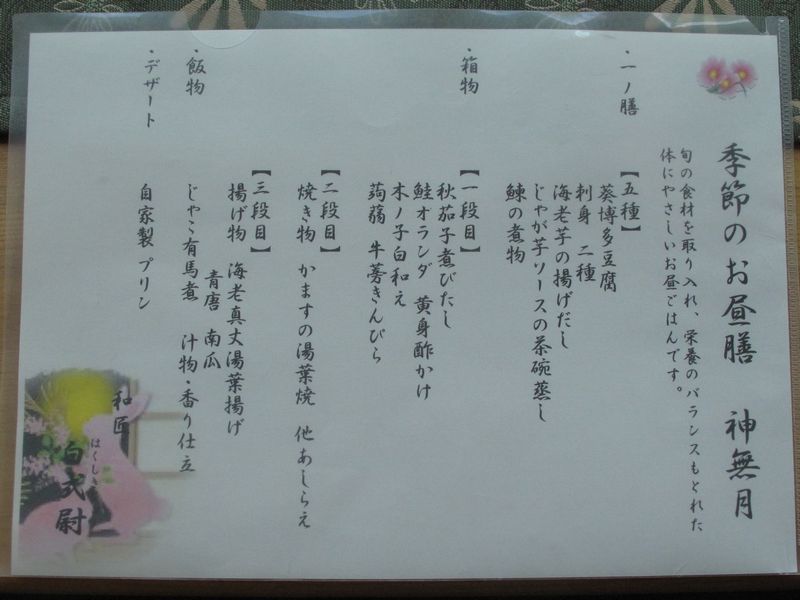 季節のお昼膳　神無月
旬の食材を取り入れ、栄養のバランスもとれた
体にやさしいお昼ごはんです。
・一ノ膳
【五種】
葵博多豆腐
刺身　二種
海老芋の揚げだし
じゃが芋ソースの茶碗蒸し
鰊の煮物
・箱物
【一段目】
秋茄子煮びたし
鮭オランダ　黄身酢かけ
木ノ子白和え
蒟蒻　牛蒡きんぴら
【二段目】
焼き物　かますの湯葉焼　他あしらえ
【三段目】
揚げ物　海老真丈湯葉揚げ
青唐　南瓜
・飯物
じゃこ有馬煮　汁物・香り仕立
・デザート
自家製プリン
和匠
はくしき
白式尉